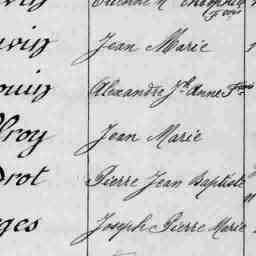 Jean Marie
ouin Alexandre Jh Anne Fois
lroy Jean Marie
Drot Pierre Jean Baptiste
ges Joseph Pierre Marie